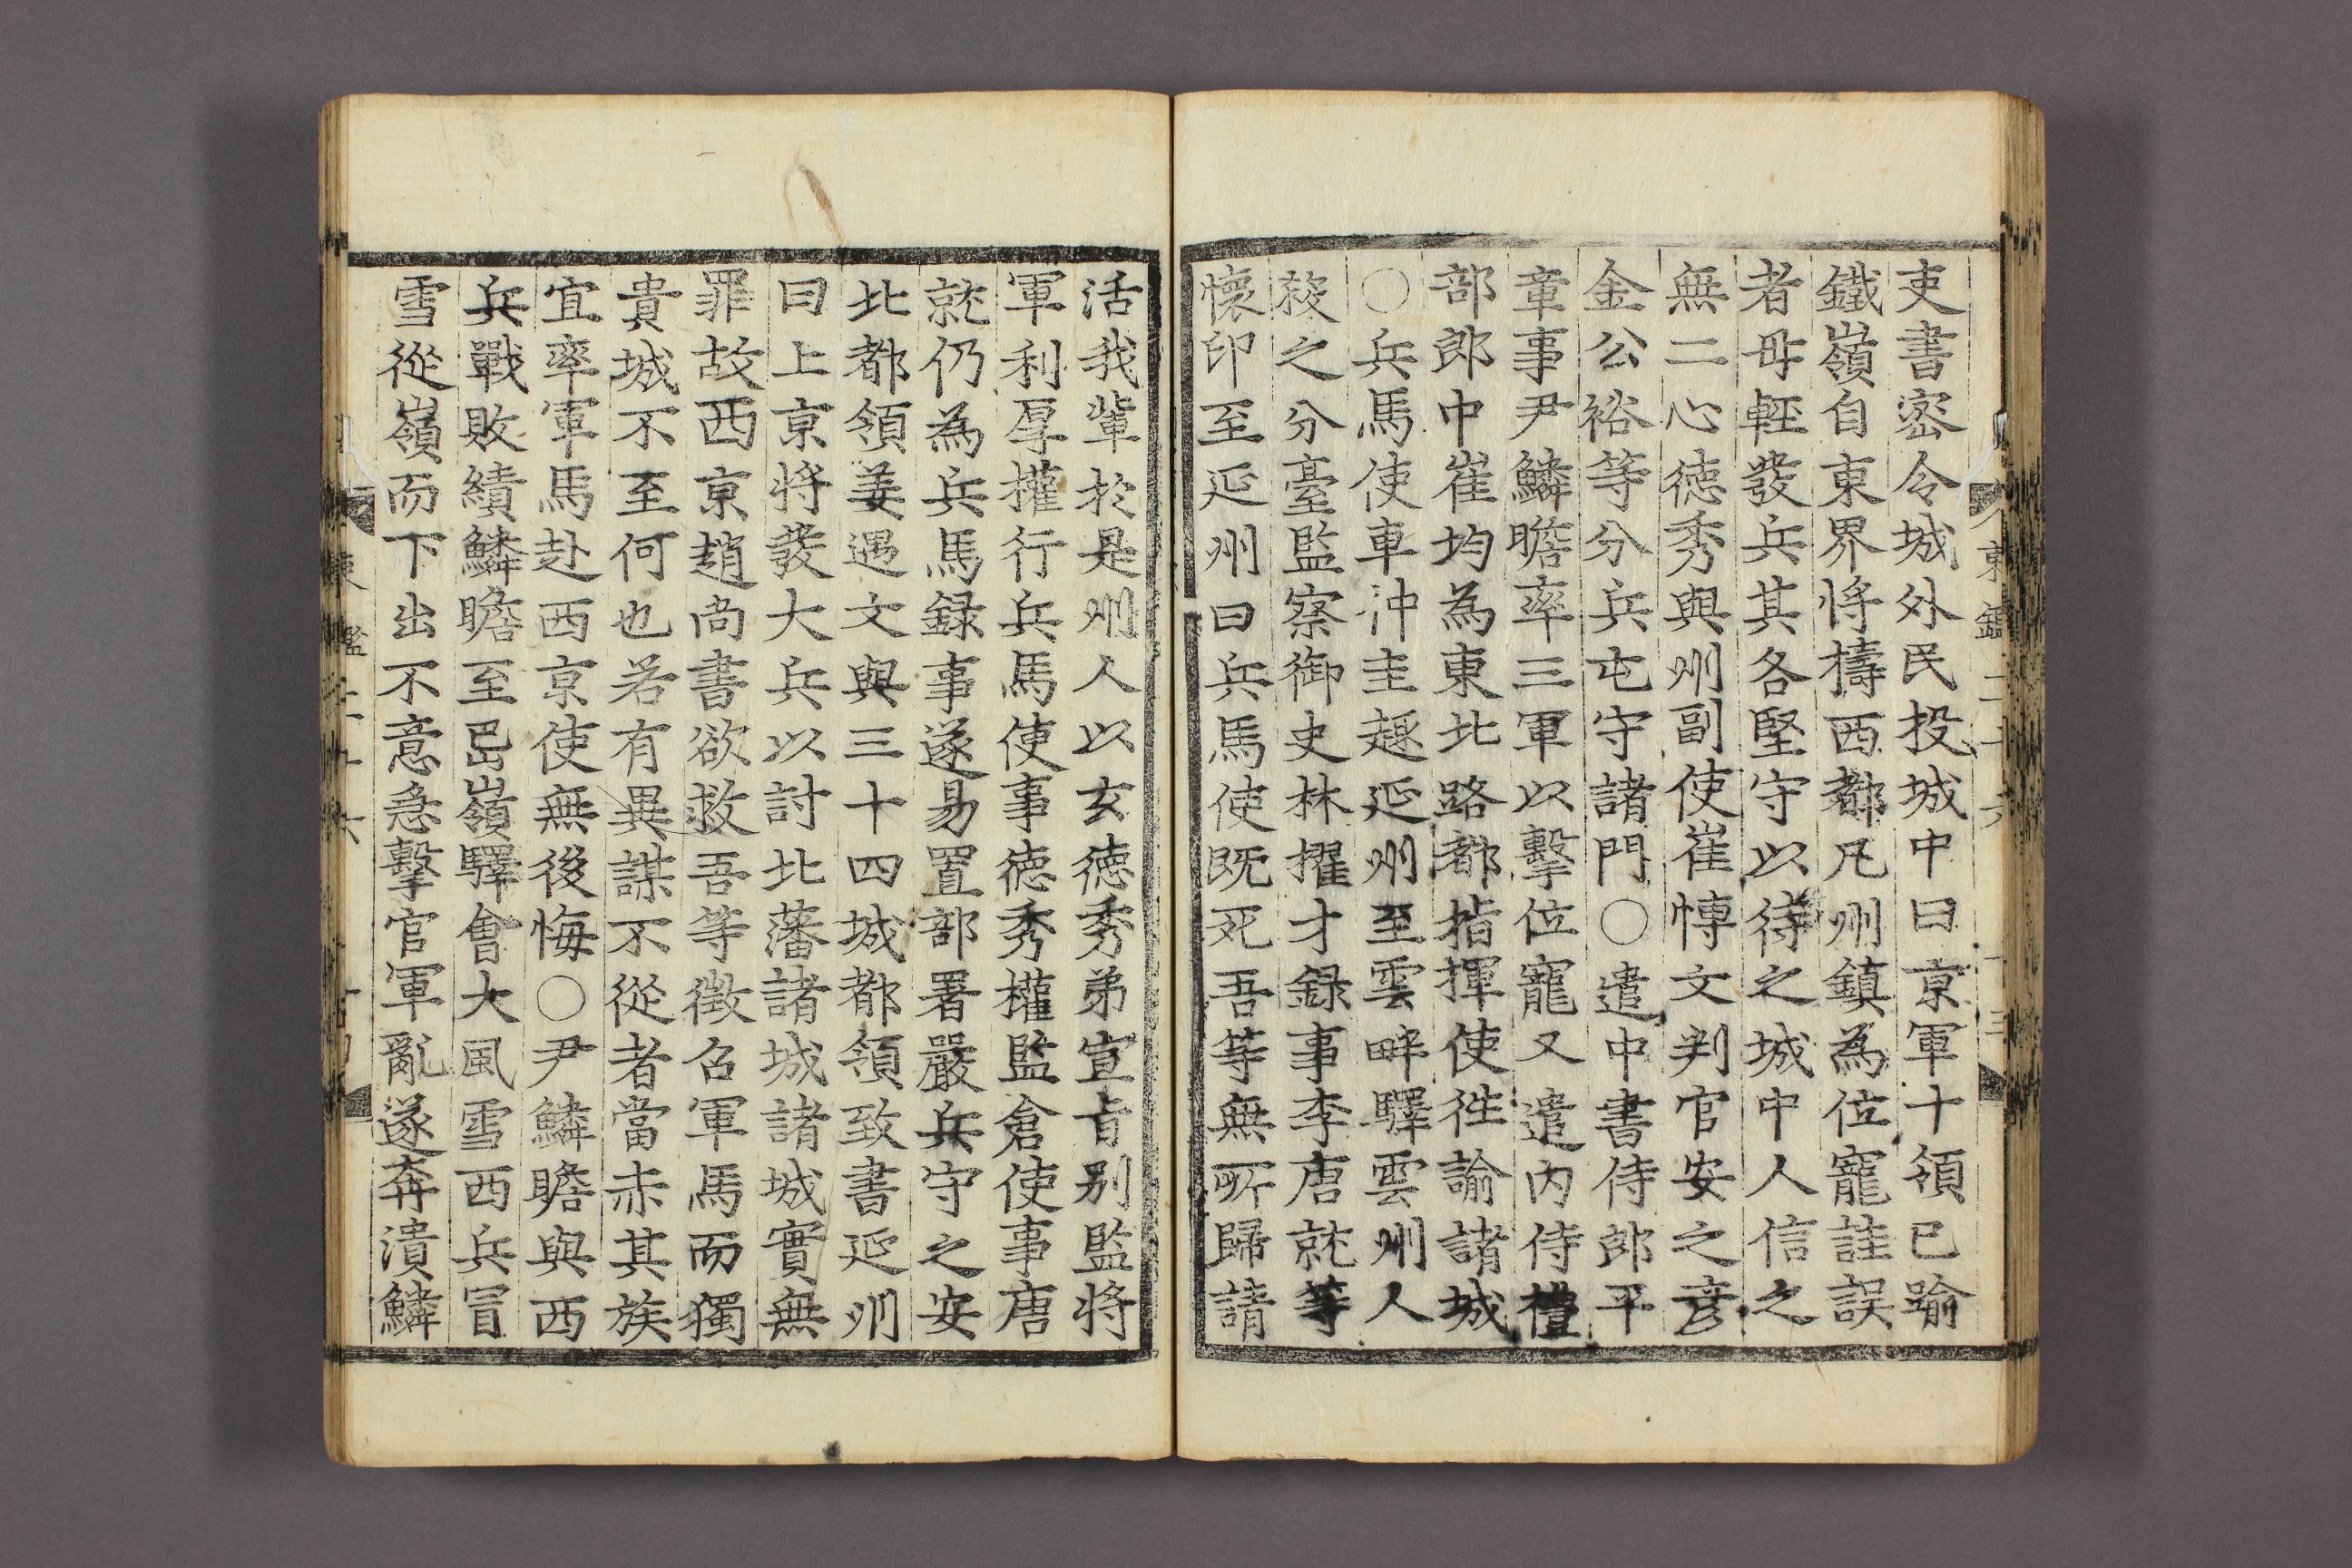 吏書密令城外民投城中曰京軍十領已踰
鐵嶺自東界將擣西都凡州鎮為位寵詿誤
者毋輕發兵其各堅守以待之城中人信之
無二心徳秀與州副使崔愽文判官安之彦
金公裕等分兵屯守諸門○遣中書侍郎平
章事尹鱗瞻率三軍以擊位寵又遣內侍禮
部郎中崔均為東北路都指揮使徃諭諸城
○兵馬使車沖圭趍延州至雲畔驛雲州人
殺之分臺監察御史林擢才録事李唐就等
懷印至延州曰兵馬使既死吾等無所歸請
活我輩於是州人以玄徳秀弟宣旨别監將
軍利厚權行兵馬使事徳秀權監倉使事唐
就仍為兵馬録事遂易置部署嚴兵守之安
北都領姜遇文與三十四城都領致書延州
曰上京將發大兵以討北藩諸城諸城實無
罪故西京趙尚書欲救吾等徵召軍馬而獨
貴城不至何也若有異謀不從者當赤其族
宜率軍馬赴西京使無後悔○尹鱗瞻與西
兵戰敗績鱗瞻至岊嶺驛會大風雪西兵冒
雪從嶺而下出不意急擊官軍亂遂奔潰鱗